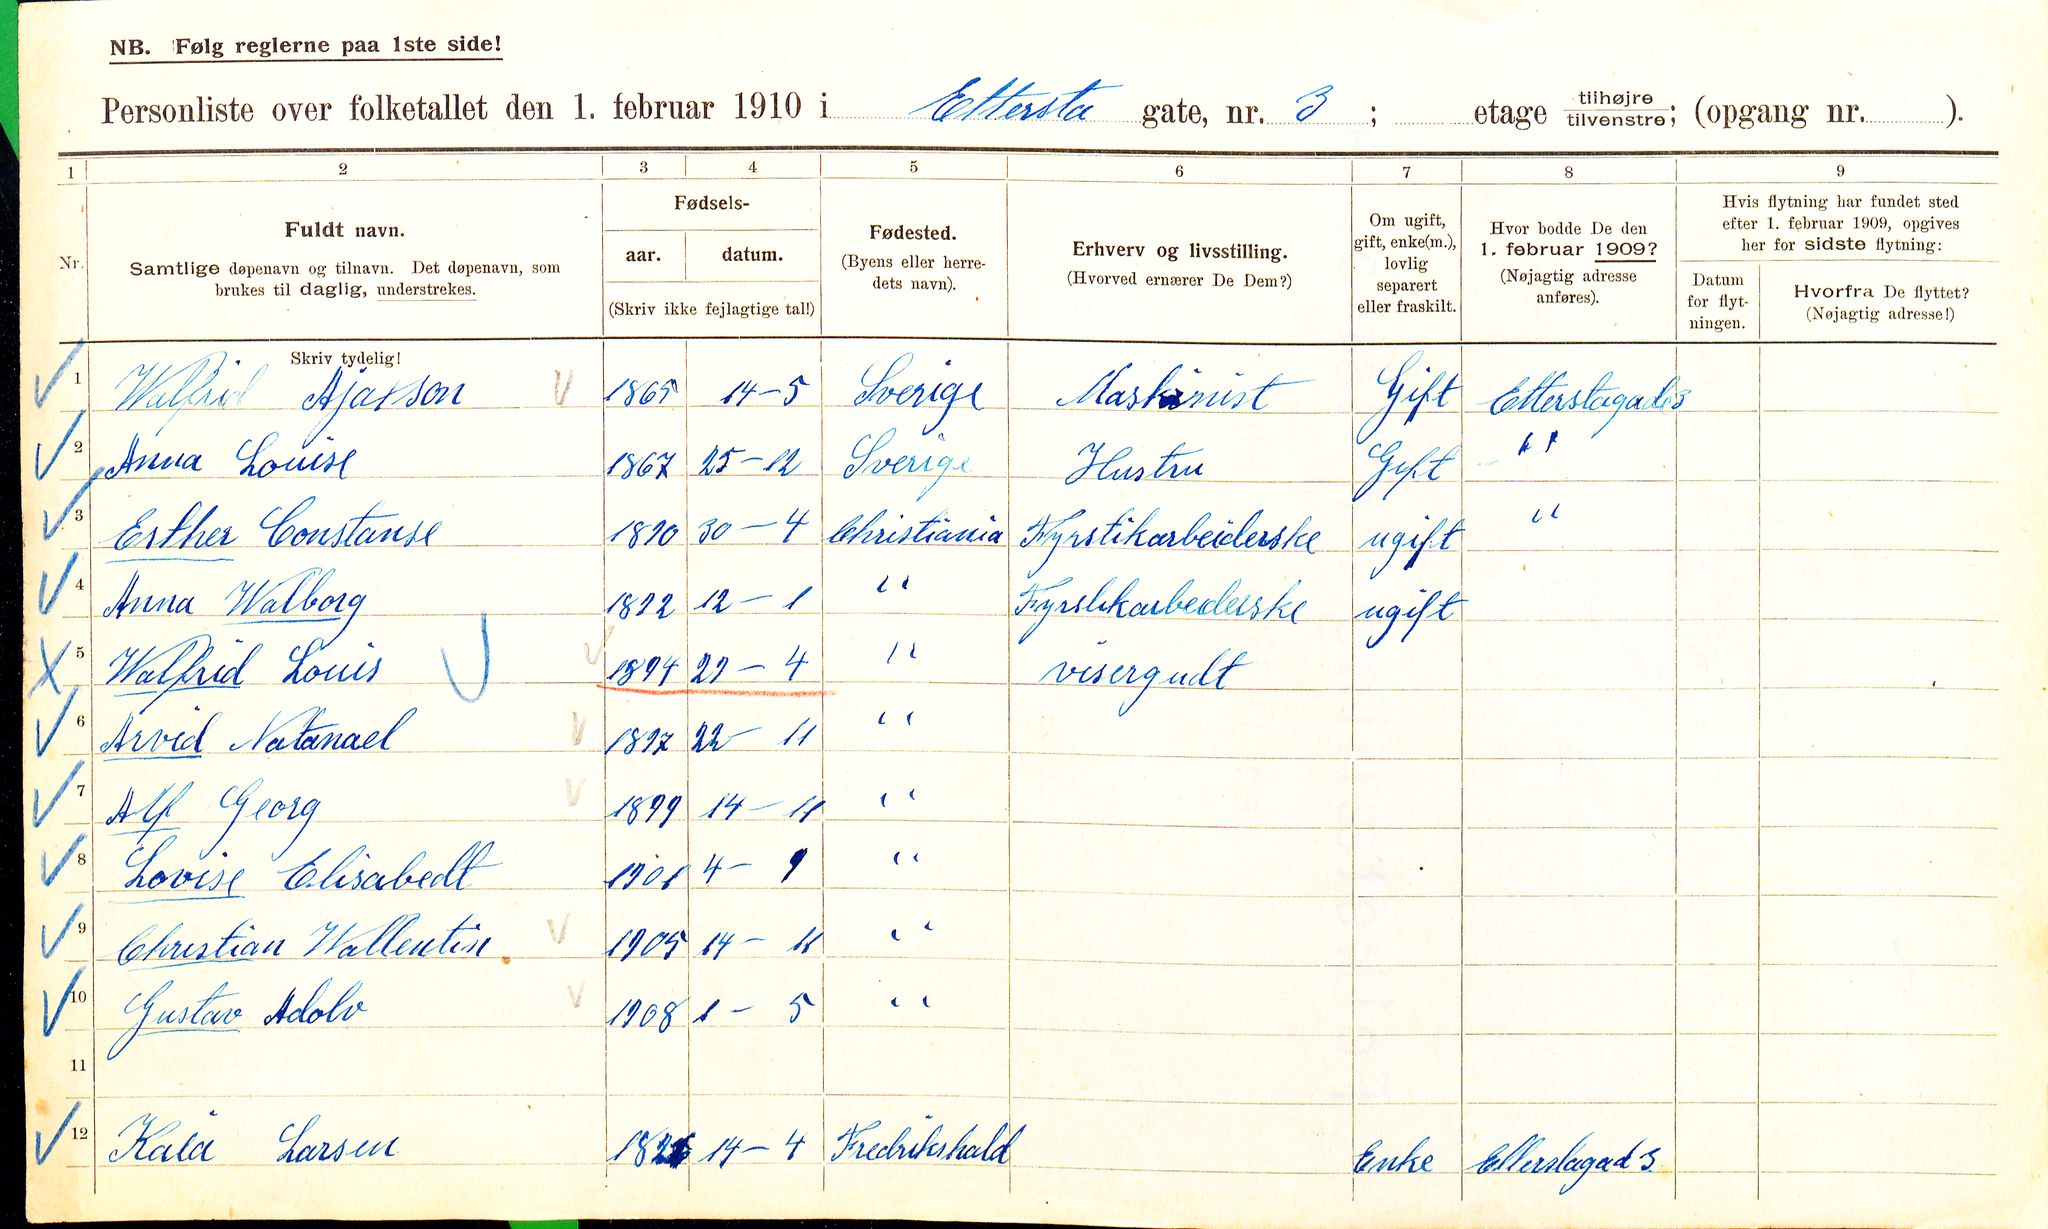 NB. Følg reglerne paa 1ste side!
Personliste over folketallet den 1. februar 1910 i Ettersta gate, nr. 3 ; etage tilhøjre tilvenstre; (opgang nr. ).
1 2 3 4 5 6 7 8 9
Nr.
Fuldt navn.
Samtlige døpenavn og tilnavn. Det døpenavn, som
brukes til daglig, understrekes.
Skriv tydelig!
Fødsels-
aar. datum.
(Skriv ikke fejlagtige tal!)
Fødested.
(Byens eller herre-
dets navn).
Erhverv og livsstilling.
(Hvorved ernærer De Dem?)
Om ugift,
gift, enke(m.),
lovlig
separert
eller fraskilt.
Hvor bodde De den
1. februar 1909?
(Nøjagtig adresse
anføres).
Hvis flytning har fundet sted
efter 1. februar 1909, opgives
her for sidste flytning:
Datum
for flyt-
ningen.
Hvorfra De flyttet?
(Nøjagtig adresse!)
1 Walfrid Ajaxson 1865 14-5 Sverige Maskinist Gift Etterstagade 3
2 Anna Louise 1867 25-12 Sverige Hustru Gift "
3 Esther Constanse 1890 30-4 Christiania Fyrstikarbeiderske ugift "
4 Anna Walborg 1892 12-1 " Fyrstikarbederske ugift
5 Walfrid Louis 1894 29-4 " visergudt
6 Arvid Natanael 1897 22-11 "
7 Alf Georg 1899 14-11 "
8 Lovise Elisabedt 1901 4-9 "
9 Christian Wallentin 1905 14-11 "
10 Gustav Adolv 1908 1-5 "
11
12 Kaia Larsen 14-4 Fredrikshald Enke Etterstagad 3